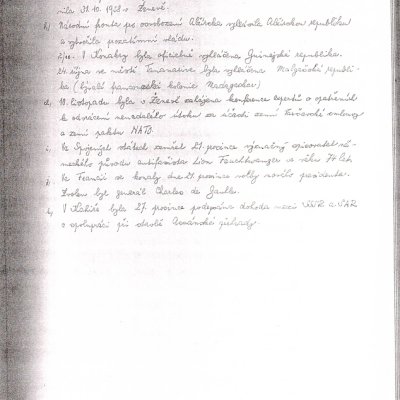 nila 31.10. 1958 v Ženevě.
b, Národní fronta po osvobození Alžírska vyhlásila Alžírskou republiku
a vytvořila prozatímní vládu.
2/10. V Konakry byla oficiálně vyhlášena Guinejská republika.
14. října ve městě Tananarive byla vyhlášena Malgašská republi-
ka (bývalá francouzská kolonie Madagaskar)
d, 10. listopadu byla v Ženevě zahájena konference expertů o opatřeních
k odvrácení nenadálého útoku za účasti zemí Varšavské smlouvy
a zemí paktu NATO.
Ve Spojených státech zemřel 21. prosince významný spisovatel ně-
meckého původu antifašista Lion Feuchtwanger ve věku 74 let.
Ve Francii se konaly dne 21. prosince volby nového presidenta.
Zvolen byl generál Charles de Gaulle.
V Káhiře byla 27. prosince podepsána dohoda mezi SSSR a SAR
o spolupráci při stavbě Asuánské přehrady.